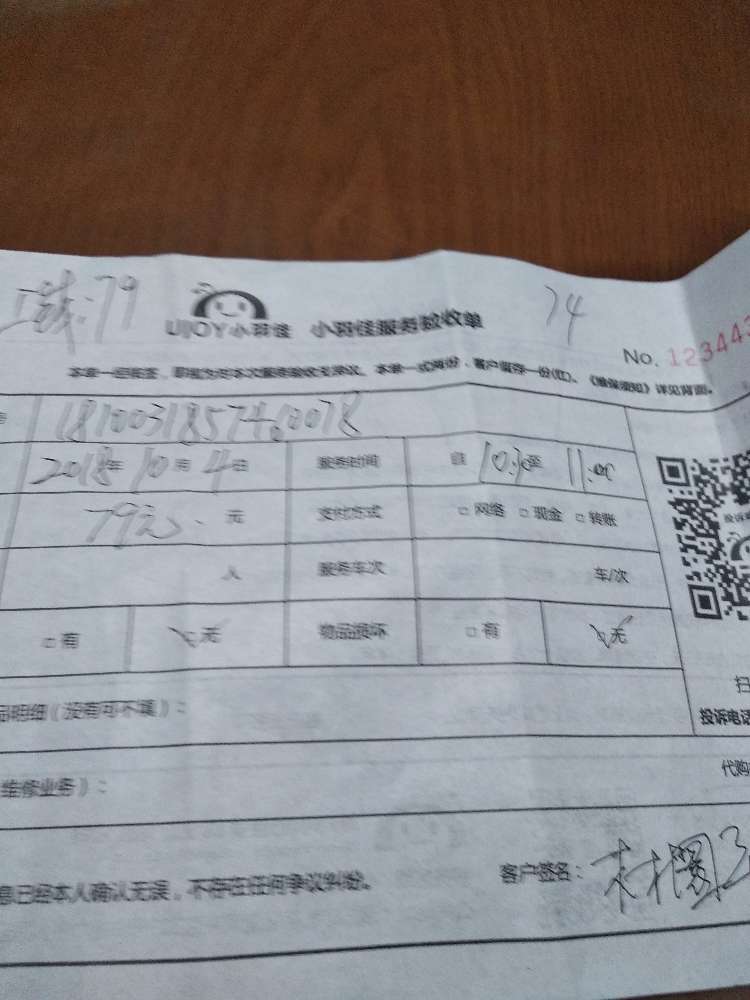 79 74
UIJOY小羽佳 小羽佳服务验收单
No. 123443
本单一经签字，即视为对本次服务验收无异议。本单一式两份，客户留存一份(红)。《维保须知》详见背面。
1810031857460078
2018年10月4日 服务时间 自10:30至11:00
79元 元 支付方式 □网络 □现金 □转账
人 服务车次 车/次
□有 无 物品损坏 □有 无
品明细（没有可不填）：
投诉电话
维修业务）： 代购
息已经本人确认无误，不存在任何争议纠纷。 客户签名：